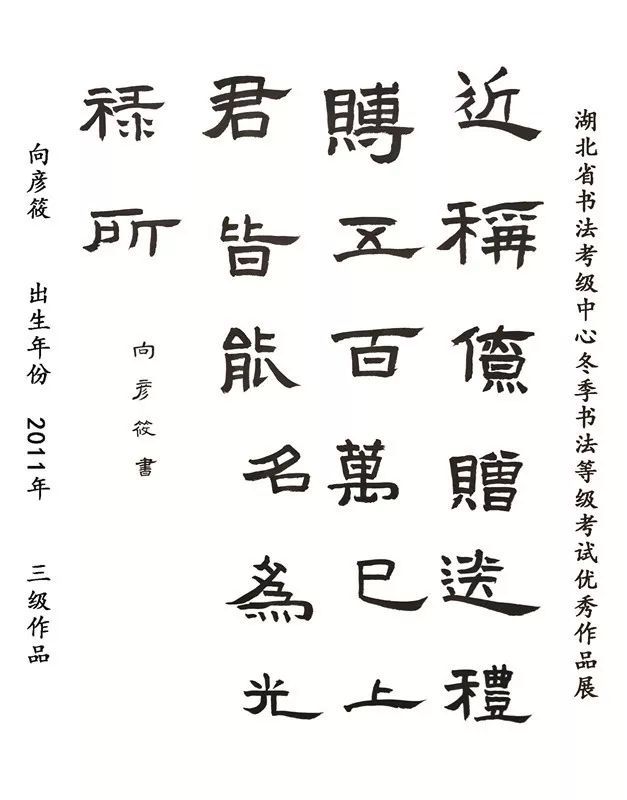 湖北省书法考级中心冬季书法等级考试优秀作品展
近稱僚贈送禮
賻五百萬已上
君皆能名為光
禄所
向彦筱書
向彦筱 出生年份 2011年 三级作品